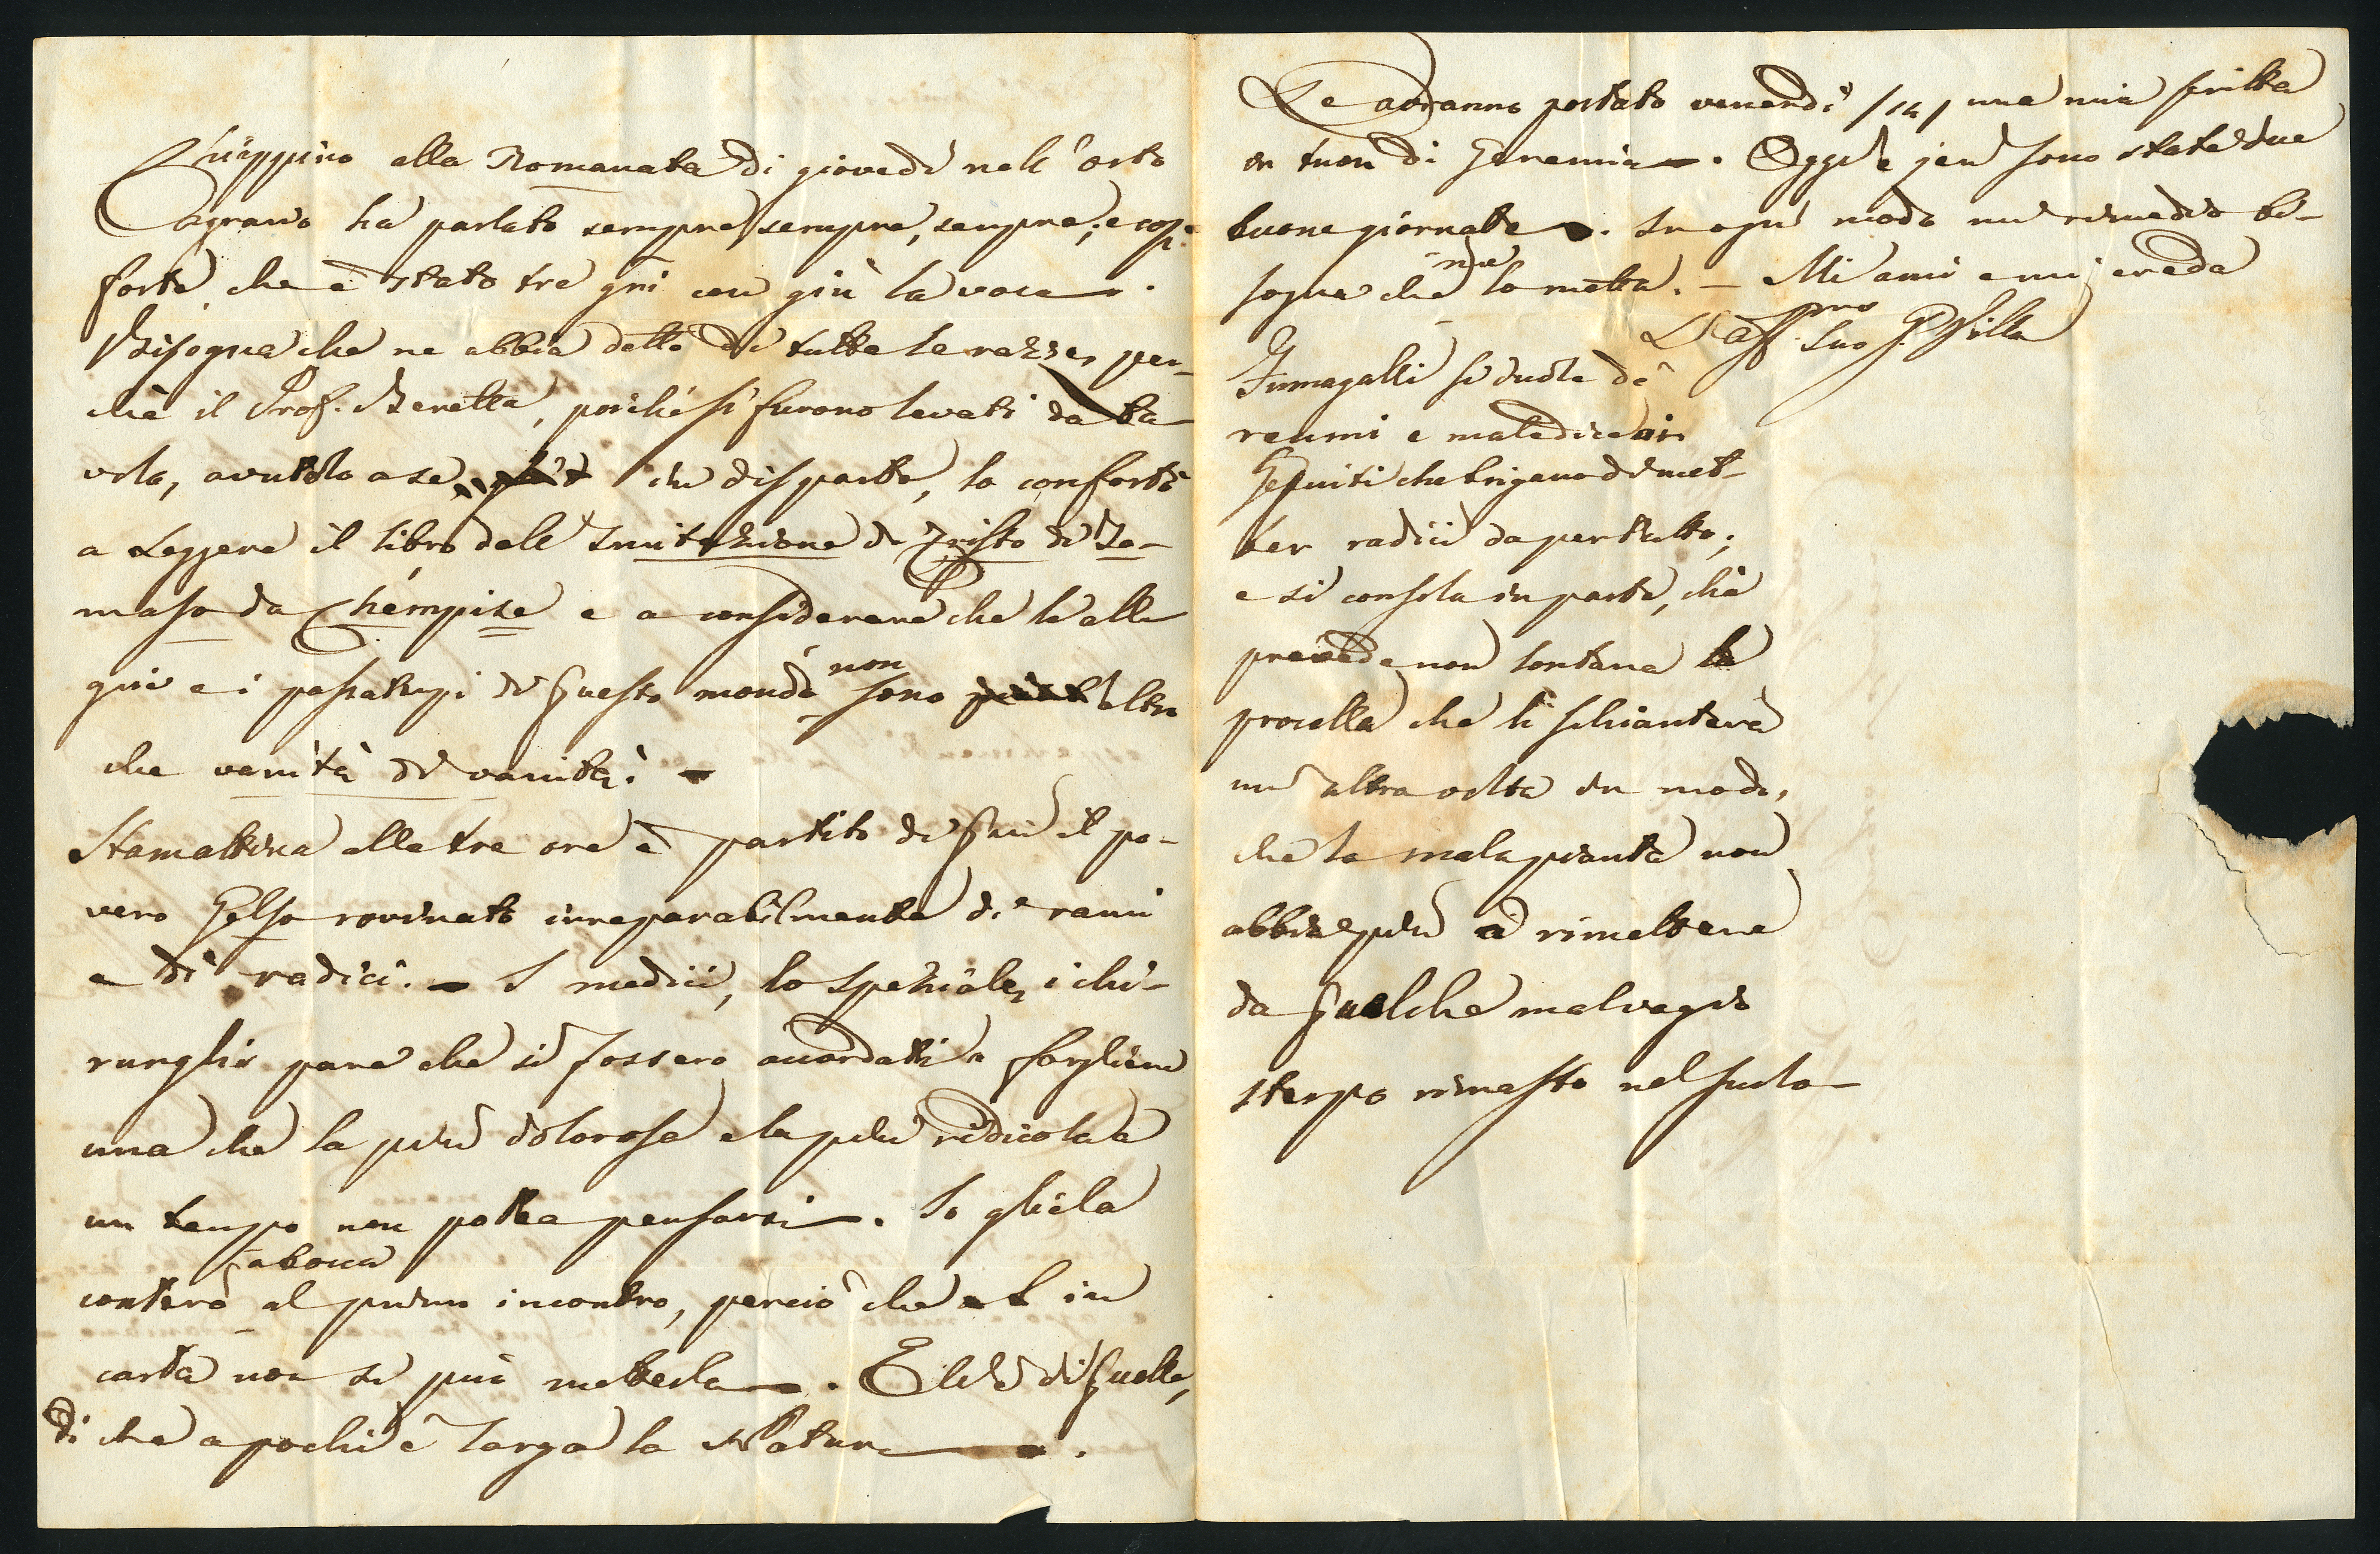 alla Romanata di giovedì nell'orto
Cagrano ha parlato sempre, sempre, sempre; e così
forte, che è stato tre gni con giù la voce.
Bisogna che ne abbia dette di tutte le razze, per-
chè il Prof. Beretta, poichè si furono levati da ta-
vola, avutolo a se in disparte, lo confortò
a leggere il libro dell'Imitazione di Cristo di To-
maso da Chémpise e a considerare che le alle
grie e i passatempi di questo mondo non sono altro
che vanità di vanità. -
Stamattina alle tre ore è partito di qui il po-
vero Gelso rovinato irreparabilmente di rami
e di radici. - I medici, lo speziale, i chi-
rurghi pare che si fossero accordati a fargliene
una che la più dolorosa e la più ridicola a
un tempo non potea pensarsi. Io gliela
conterò a bocca al primo incontro, perciò che in
carta non si può metterla. Ell'è di quelle,
di che a pochi è larga la Natura.
Le avranno portato venerdì /14/ una mia scritta
in tuon di Geremia. Oggi e jeri sono state due
buone giornate. In ogni modo un rimedio bi-
sogna che me lo metta. - Mi ami e mi creda
L'aff.mo suo G. Villa
Fumagalli si duole de'
reumi e maledice ai
Gesuiti che brigano di met-
ter radici da per tutto;
e si consola in parte, chè
prevede non lontana la
procella che li schianterà
un'altra volta in modo,
che la mala pianta non
abbia più a rimettere
da qualche malvagio
sterpo rimasto nel suolo